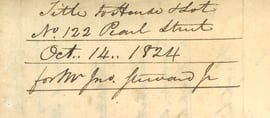 Title to House & Lot
No. 122 Pearl Street
Oct. 14.. 1824
for Mr Jno. Steward Jr